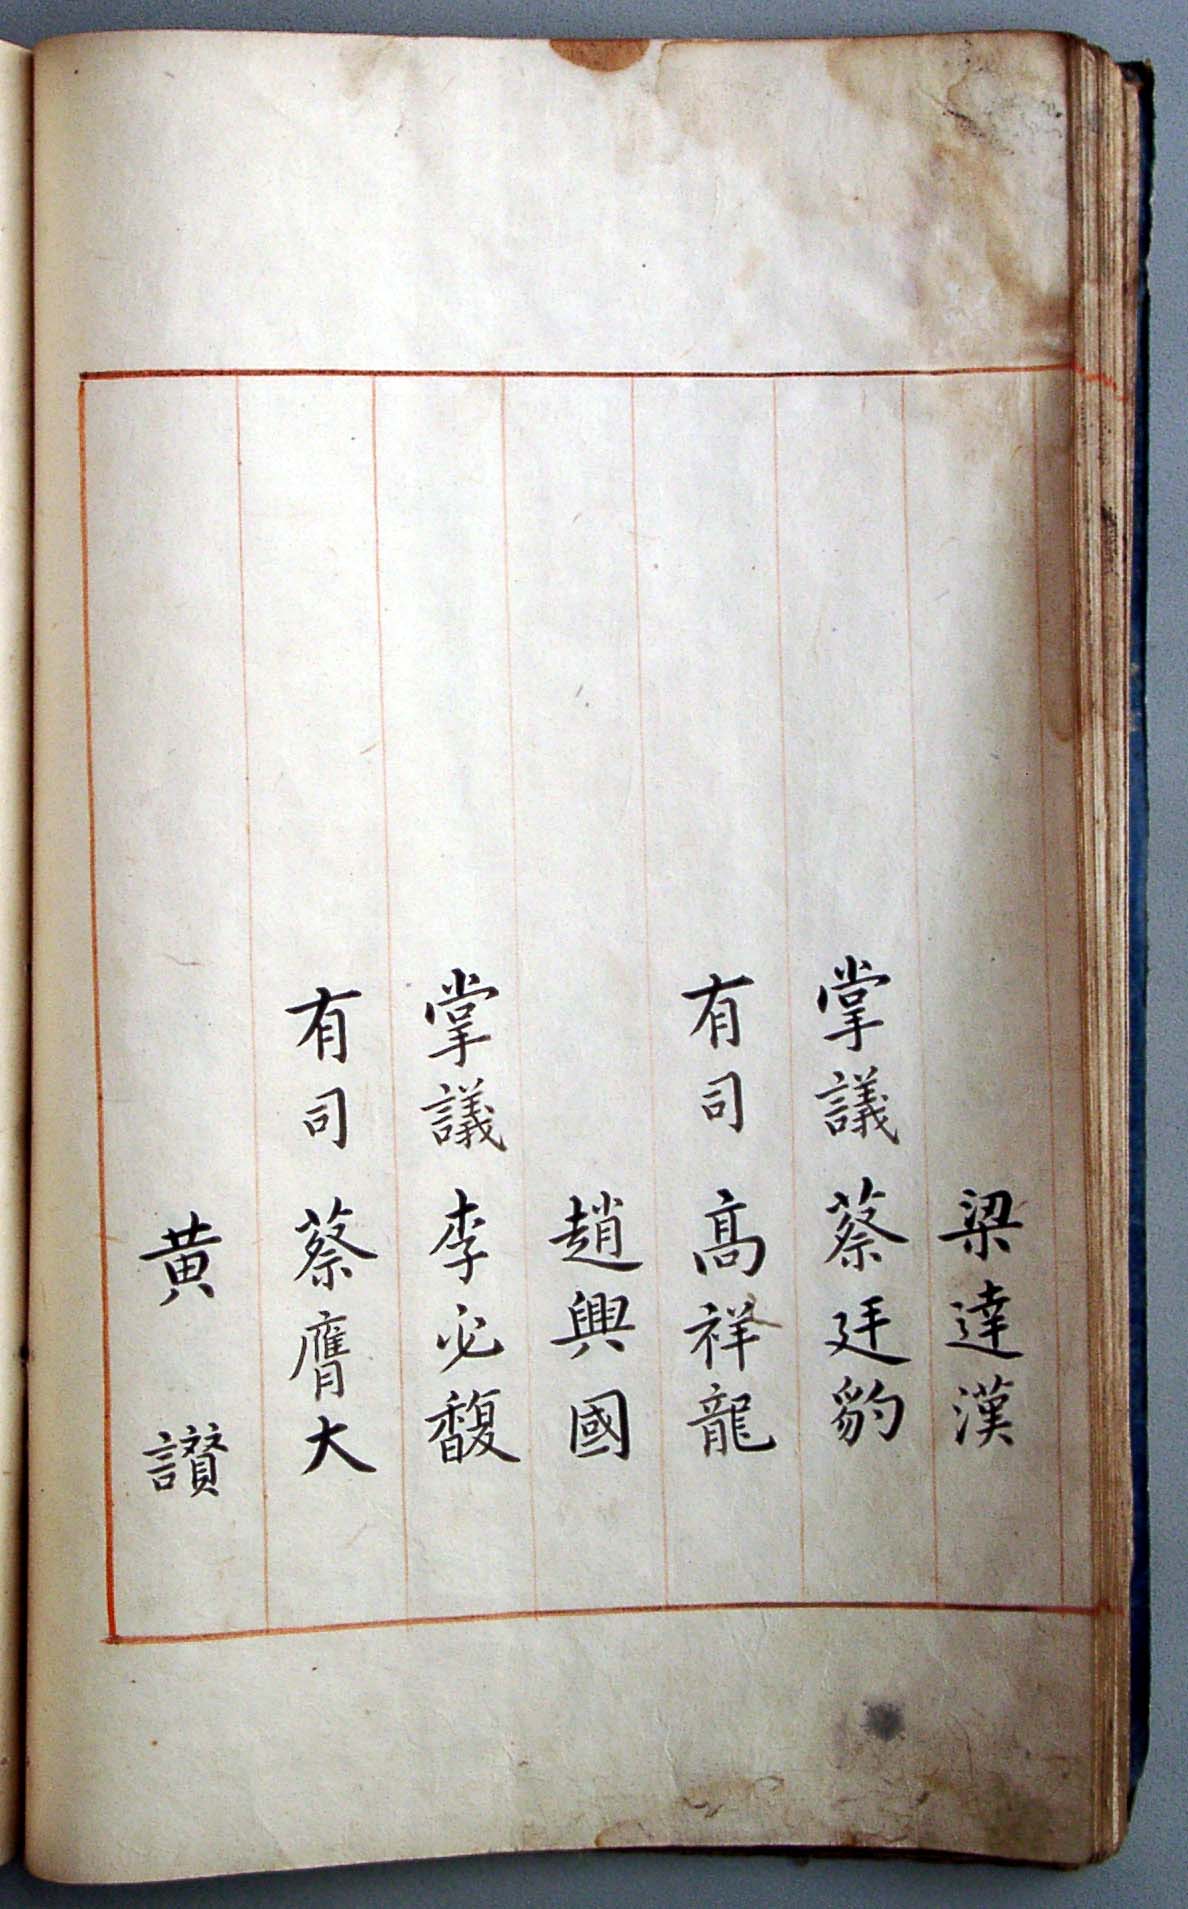 梁達漢
掌議 蔡廷豹
有司 高祥龍
趙興國
掌議 李必馥
有司 蔡膺大
黄讃